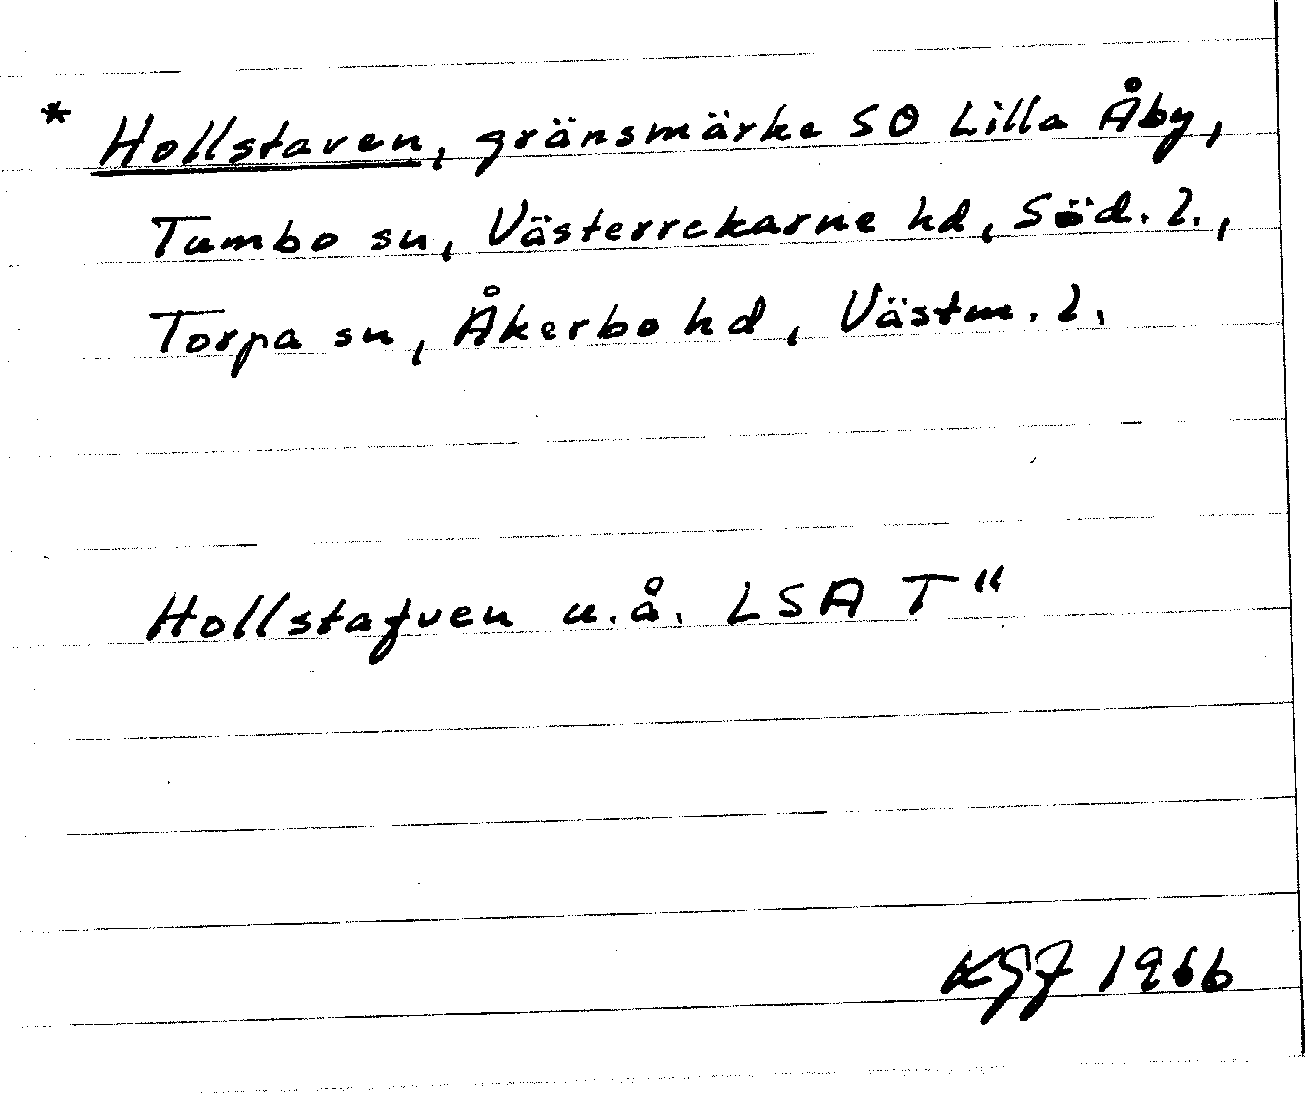 * Hollstaven, gränsmärke SO Lilla Åby,
Tumbo sn, Västerrekarne hd, Söd. l.,
Torpa sn, Åkerbo hd, Västm. l.
Hollstafven u.å. LSA T"
KGJ 1966